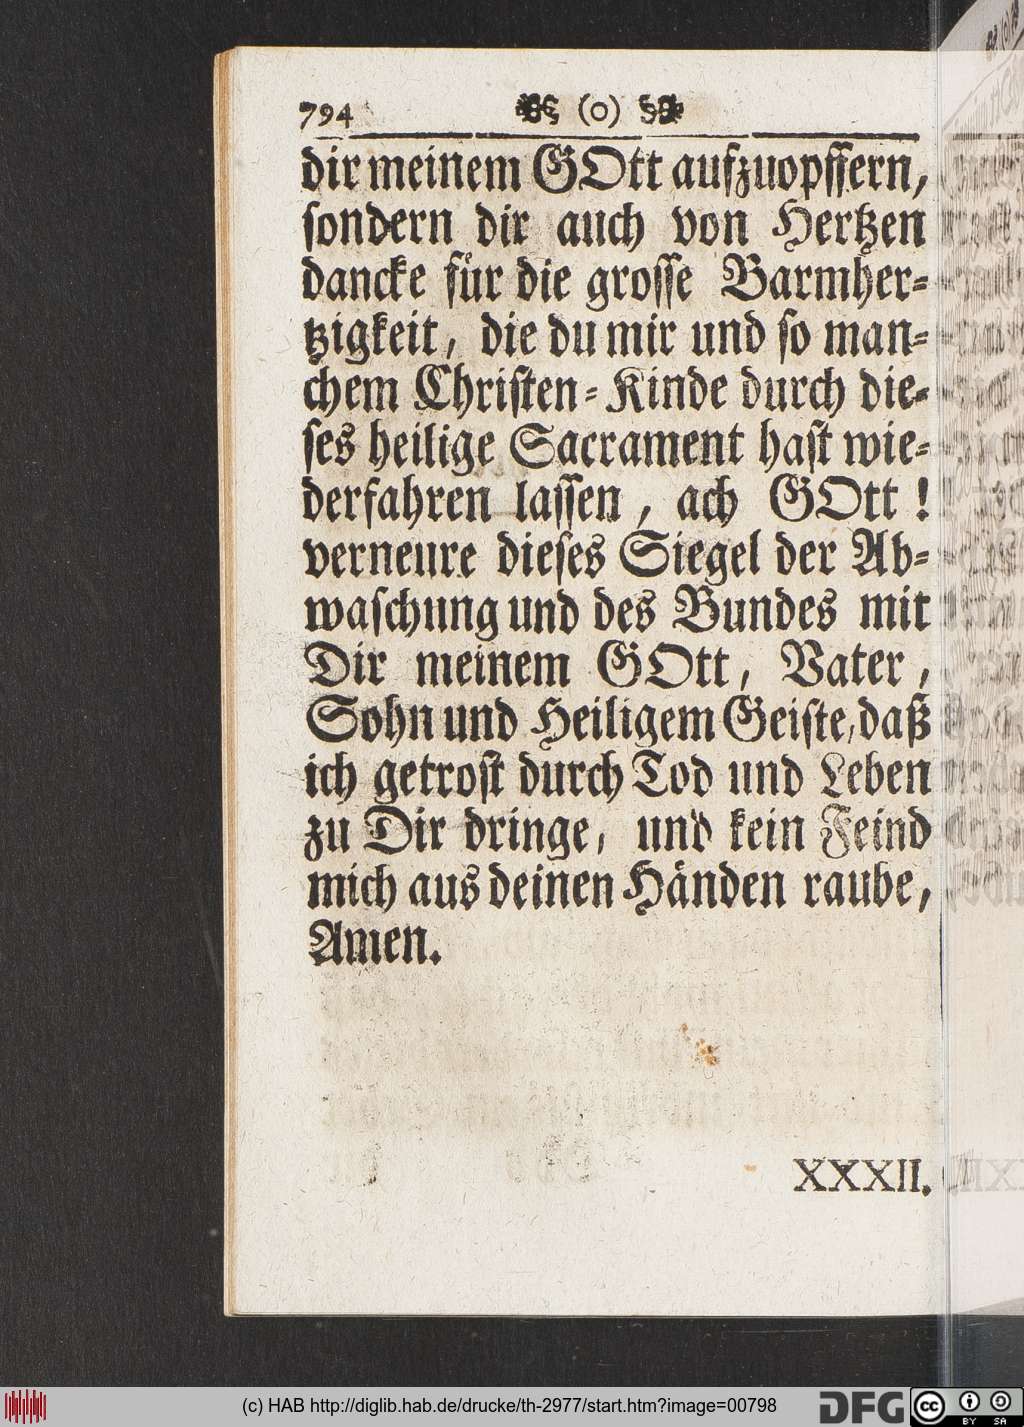 794 (o)
dir meinem GOtt aufzuopffern,
sondern dir auch von Hertzen
dancke für die grosse Barmher-
tzigkeit, die du mir und so man-
chem Christen-Kinde durch die-
ses heilige Sacrament hast wie-
derfahren lassen, ach GOtt!
verneure dieses Siegel der Ab-
waschung und des Bundes mit
Dir meinem GOtt, Vater,
Sohn und Heiligem Geiste, daß
ich getrost durch Tod und Leben
zu Dir dringe, und kein Feind
mich aus deinen Händen raube,
Amen.
XXXII.
(c) HAB http://diglib.hab.de/drucke/th-2977/start.htm?image=00798
DFG
cc BY SA